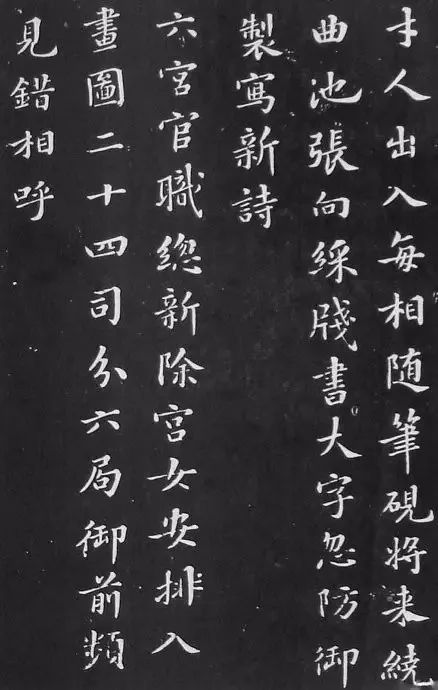 才人出入每相随筆硯將来繞
曲池張向綵牋書大字忽防御
製寫新詩
六宮官職緫新除宮女安排入
畫圖二十四司分六局御前頻
見錯相呼